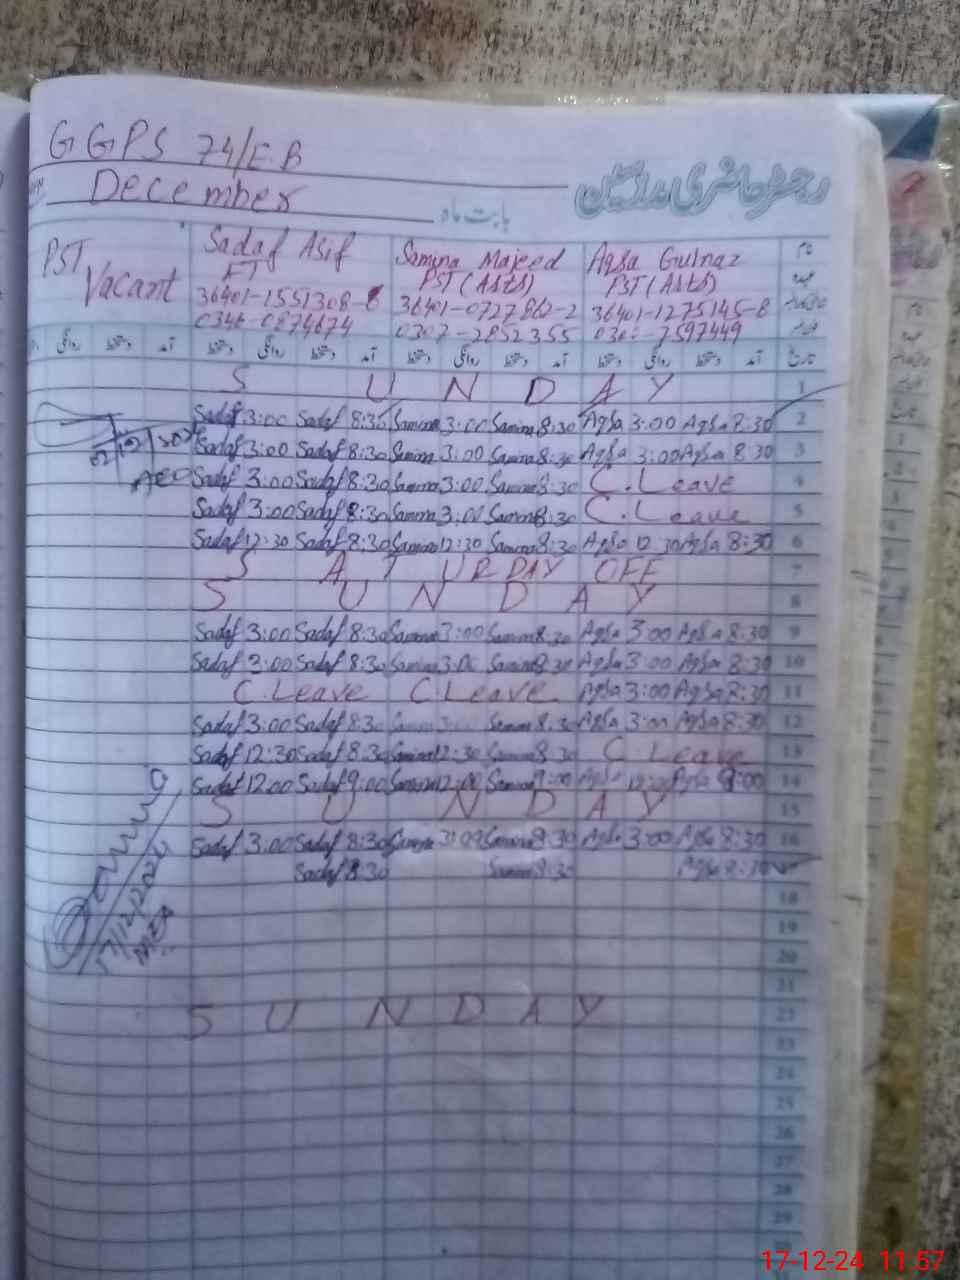 GGPS 74/E.B
رجسٹر حاضری مدرسین
December
بابت ماہ
PST Vacant
Sadaf Asif
Samina Majeed
Aqsa Gulnaz
نام
PST (Arts)
PST (Arts)
عہدہ
36401-1551308-8
36401-0727862-2
36401-1275145-8
0346-0874674
0307-2852355
روانگی دستخط آمد دستخط روانگی دستخط آمد دستخط روانگی دستخط آمد دستخط روانگی دستخط آمد تاریخ
S U N D A Y 1
Sadaf 3:00 Sadaf 8:30 Samina 3:00 Samina 8:30 Aqsa 3:00 Aqsa 8:30 2
Sadaf 3:00 Sadaf 8:30 Samina 3:00 Samina 8:30 Aqsa 3:00 Aqsa 8:30 3
AEO
Sadaf 3:00 Sadaf 8:30 Samina 3:00 Samina 8:30 C.Leave 4
Sadaf 3:00 Sadaf 8:30 Samina 3:00 Samina 8:30 C.Leave 5
Sadaf 12:30 Sadaf 8:30 Samina 12:30 Samina 8:30 Aqsa 12 30 Aqsa 8:30 6
S A T U R D A Y OFF 7
S U N D A Y 8
Sadaf 3:00 Sadaf 8:30 Samina 3:00 Samina 8:30 Aqsa 3:00 Aqsa 8:30 9
Sadaf 3:00 Sadaf 8:30 Samina 3:00 Samina 8:30 Aqsa 3:00 Aqsa 8:30 10
C.Leave C.Leave Aqsa 3:00 Aqsa 8:30 11
Sadaf 3:00 Sadaf 8:30 Samina 3:00 Samina 8:30 Aqsa 3:00 Aqsa 8:30 12
Sadaf 12:30 Sadaf 8:30 Samina 12:30 Samina 8:30 C Leave 13
Sadaf 12:00 Sadaf 9:00 Samina 12:00 Samina 9:00 Aqsa 12:00 Aqsa 9:00 14
S U N D A Y 15
Sadaf 3:00 Sadaf 8:30 Samina 3:00 Samina 8:30 Aqsa 3:00 Aqsa 8:30 16
Sadaf 8:30 Samina 8:30 Aqsa 8:30
17/12/2024
MEA
18
19
20
21
S U N D A Y 22
23
24
25
26
27
28
29
30
17-12-24 11:57